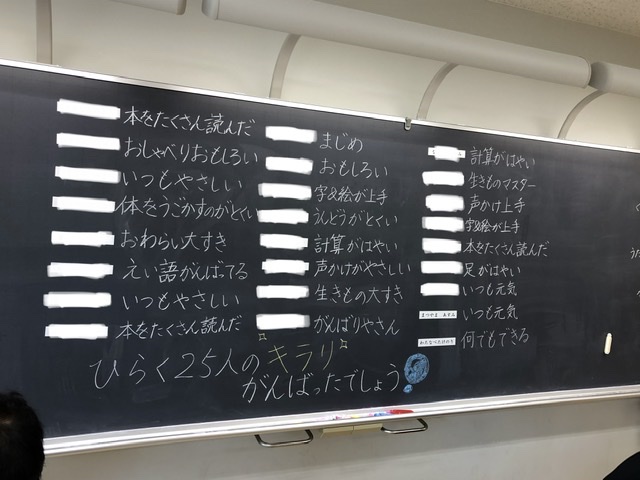 本をたくさん読んだ
おしゃべりおもしろい
いつもやさしい
体をうごかすのがとくい
おわらい大すき
えい語がんばてる
いつもやさしい
本をたくさん読んだ
まじめ
おもしろい
字&絵が上手
うんどうがとくい
計算がはやい
声かけがやさしい
生きもの大すき
がんばりやさん
計算がはやい
生きものマスター
声かけ上手
字&絵が上手
本をたくさん読んだ
足がはやい
いつも元気
いつも元気
何でもできる
ひらく25人のキラリ
がんばったでしょう